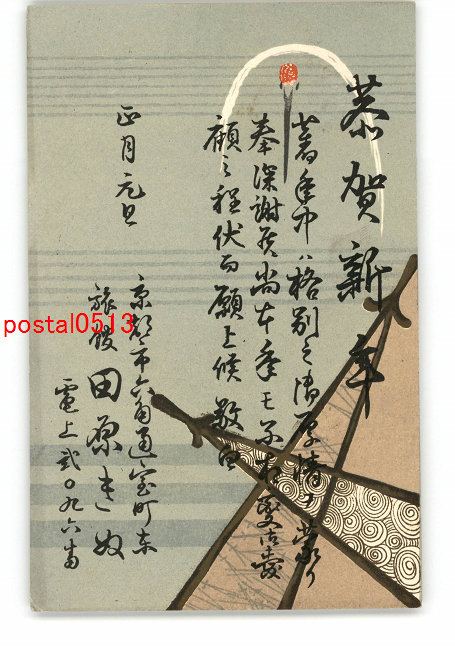 恭賀新年
舊年中ハ格別之御厚情ヲ蒙リ
奉深謝候尚本年モ不相変御愛
顧之程伏而願上候敬白
正月元旦
京都市六角通室町東
旅館 田原きぬ
電上弐〇九六番
postal0513